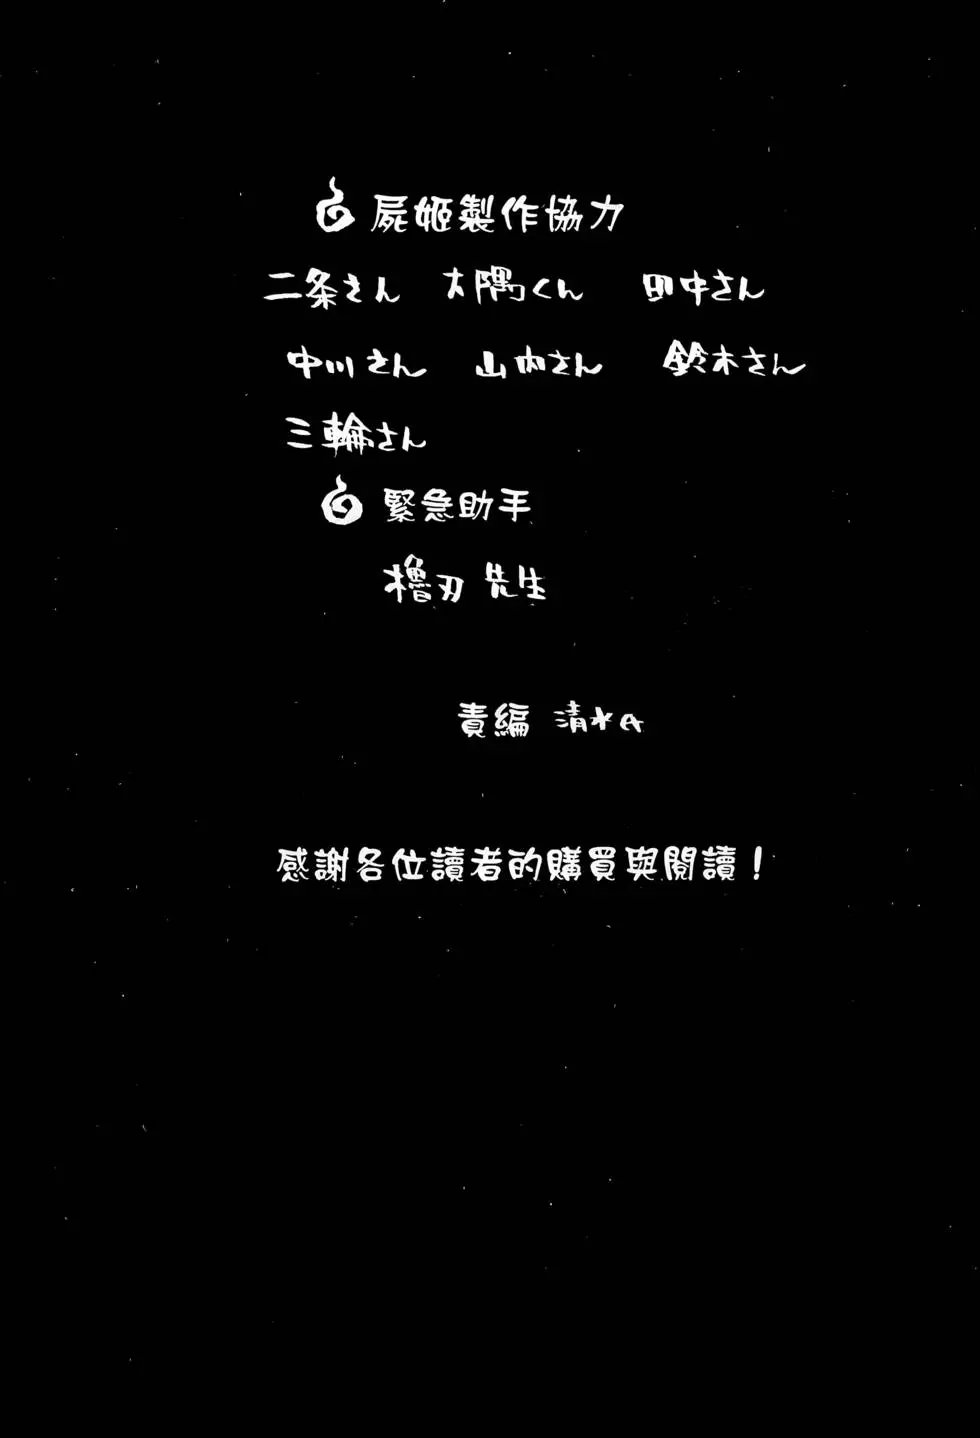 屍姬製作協力
二条さん 大隅くん 田中さん
中川さん 山内さん 鈴木さん
三輪さん
緊急助手
櫓刃 先生
責編 清水氏
感謝各位讀者的購買與閱讀！